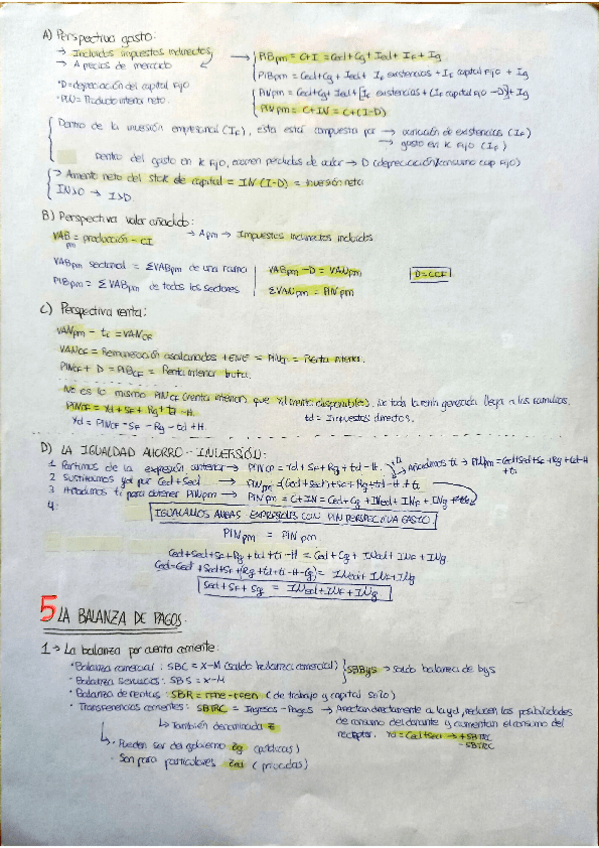 A) Perspectiva gasto:
→ Incluidos impuestos indirectos
→ A precios de mercado
→ PIBpm = C+I = Ced+Cg+Ied+If+Ig
PIBpm = Ced+Cg+Ied+If existencias + If capital fijo + Ig
*D=depreciación del capital fijo
PINpm = Ced+Cg+Ied+[If existencias+(If capital fijo -D)]+Ig
*PIN= Producto interior neto.
PINpm = C+IN = C+(I-D)
Dentro de la inversión empresarial (If), esta está compuesta por → variación de existencias (If)
→ gasto en K fijo (If)
Dentro del gasto en K fijo, ocurren pérdidas de valor → D (depreciación/consumo cap fijo)
→ Amento neto del stok de capital = IN (I-D) = inversión neta
IN>0 → I>D
B) Perspectiva valor añadido:
VABpm = producción - CI → Apm → Impuestos indirectos incluidos
VABpm sectorial = ΣVABpm de una rama VABpm - D = VANpm D=CCF
PIBpm = ΣVABpm de todos los sectores ΣVANpm = PINpm
C) Perspectiva renta:
VANpm - ti = VANCF
VANCF = Remuneración asalariados + ENE = PINCF = Renta interior.
PINCF + D = PIBCF = Renta interior bruta.
No es lo mismo PINCF (renta interior) que Yd (renta disponible). De toda la renta generada llega a las familias.
PINCF = Yd + SF + Rg + td - H. td = Impuestos directos.
Yd = PINCF - SF - Rg - td + H.
D) LA IGUALDAD AHORRO - INVERSIÓN:
1 Partimos de la expresión anterior → PINCF = Yd + SF + Rg + td - H. Añadimos ti → PINpm = Ced+Sed+SF+Rg+td-H+ti
2 Sustituimos yd por Ced+Sed → PINpm = (Ced+Sed)+SF+Rg+td-H+ti
3 Añadimos ti para obtener PINpm → PINpm = C+IN = Ced+Cg+INed+INF+INg
4: IGUALAMOS AMBAS EXPRESIONES CON PIN PERSPECTIVA GASTO
PINpm = PINpm
Ced+Sed+SF+Rg+td+ti-H = Ced+Cg+INed+INF+INg
Ced-Ced+Sed+SF+(Rg+td+ti-H-Cg) = INed+INF+INg
Sed+SF+Sg = INed+INF+INg
5 LA BALANZA DE PAGOS.
1→ La balanza por cuenta corriente:
*Balanza comercial: SBC = X-M (saldo balanza comercial) SBBys → saldo balanza de bys
*Balanza servicios: SBS = X-M
*Balanza de rentas: SBR = rme-reen (de trabajo y capital solo)
*Transferencias corrientes: SBTRC = Ingresos - Pagos → Afectan directamente a la yd, reducen las posibilidades
de consumo del donante y aumentan el consumo del
receptor. Yd = Ced+Sed → +SBTRC
-SBTRC
→ También denominada
→ · Pueden ser del gobierno (públicas)
· Son para particulares (privadas)